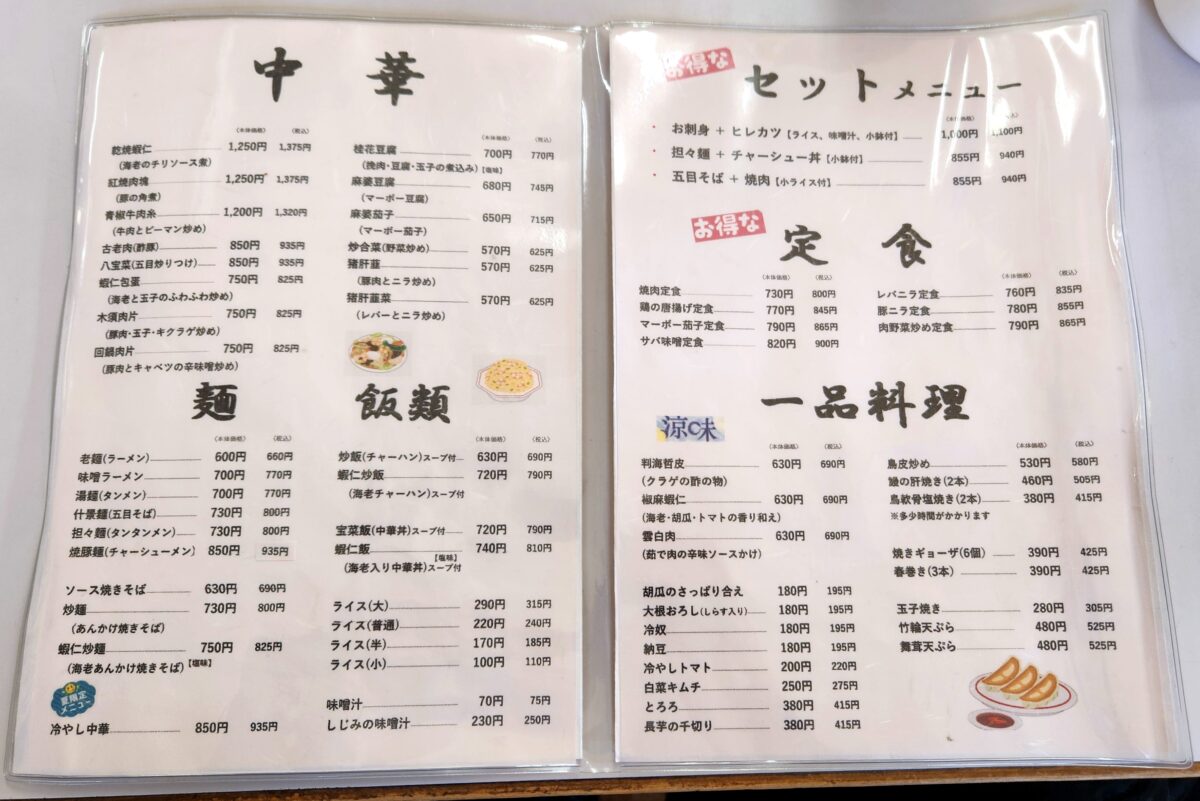 中華
(本体価格) (税込)
乾焼蝦仁 1,250円 1,375円
(海老のチリソース煮)
紅焼肉塊 1,250円 1,375円
(豚の角煮)
青椒牛肉糸 1,200円 1,320円
(牛肉とピーマン炒め)
古老肉(酢豚) 850円 935円
八宝菜(五目炒りつけ) 850円 935円
蝦仁包蛋 750円 825円
(海老と玉子のふわふわ炒め)
木須肉片 750円 825円
(豚肉・玉子・キクラゲ炒め)
回鍋肉片 750円 825円
(豚肉とキャベツの辛味噌炒め)
(本体価格) (税込)
桂花豆腐 700円 770円
(挽肉・豆腐・玉子の煮込み)【塩味】
麻婆豆腐 680円 745円
(マーボー豆腐)
麻婆茄子 650円 715円
(マーボー茄子)
炒合菜(野菜炒め) 570円 625円
猪肝韮 570円 625円
(豚肉とニラ炒め)
猪肝韮菜 570円 625円
(レバーとニラ炒め)
麺
(本体価格) (税込)
老麺(ラーメン) 600円 660円
味噌ラーメン 700円 770円
湯麺(タンメン) 700円 770円
什景麺(五目そば) 730円 800円
担々麺(タンタンメン) 730円 800円
焼豚麺(チャーシューメン) 850円 935円
ソース焼きそば 630円 690円
炒麺 730円 800円
(あんかけ焼きそば)
蝦仁炒麺 750円 825円
(海老あんかけ焼きそば)【塩味】
夏限定
メニュー
冷やし中華 850円 935円
飯類
(本体価格) (税込)
炒飯(チャーハン)スープ付 630円 690円
蝦仁炒飯 720円 790円
(海老チャーハン)スープ付
宝菜飯(中華丼)スープ付 720円 790円
蝦仁飯 740円 810円
【塩味】
(海老入り中華丼)スープ付
ライス(大) 290円 315円
ライス(普通) 220円 240円
ライス(半) 170円 185円
ライス(小) 100円 110円
味噌汁 70円 75円
しじみの味噌汁 230円 250円
お得な
セットメニュー
(本体価格) (税込)
・ お刺身 + ヒレカツ【ライス、味噌汁、小鉢付】 1,000円 1,100円
・ 担々麺 + チャーシュー丼【小鉢付】 855円 940円
・ 五目そば + 焼肉【小ライス付】 855円 940円
お得な
定食
(本体価格) (税込)
焼肉定食 730円 800円
鶏の唐揚げ定食 770円 845円
マーボー茄子定食 790円 865円
サバ味噌定食 820円 900円
(本体価格) (税込)
レバニラ定食 760円 835円
豚ニラ定食 780円 855円
肉野菜炒め定食 790円 865円
一品料理
涼味
(本体価格) (税込)
判海哲皮 630円 690円
(クラゲの酢の物)
椒麻蝦仁 630円 690円
(海老・胡瓜・トマトの香り和え)
雲白肉 630円 690円
(茹で肉の辛味ソースかけ)
胡瓜のさっぱり合え 180円 195円
大根おろし(しらす入り) 180円 195円
冷奴 180円 195円
納豆 180円 195円
冷やしトマト 200円 220円
白菜キムチ 250円 275円
とろろ 380円 415円
長芋の千切り 380円 415円
(本体価格) (税込)
鳥皮炒め 530円 580円
鰻の肝焼き(2本) 460円 505円
鳥軟骨塩焼き(2本) 380円 415円
※多少時間がかかります
焼きギョーザ(6個) 390円 425円
春巻き(3本) 390円 425円
玉子焼き 280円 305円
竹輪天ぷら 480円 525円
舞茸天ぷら 480円 525円